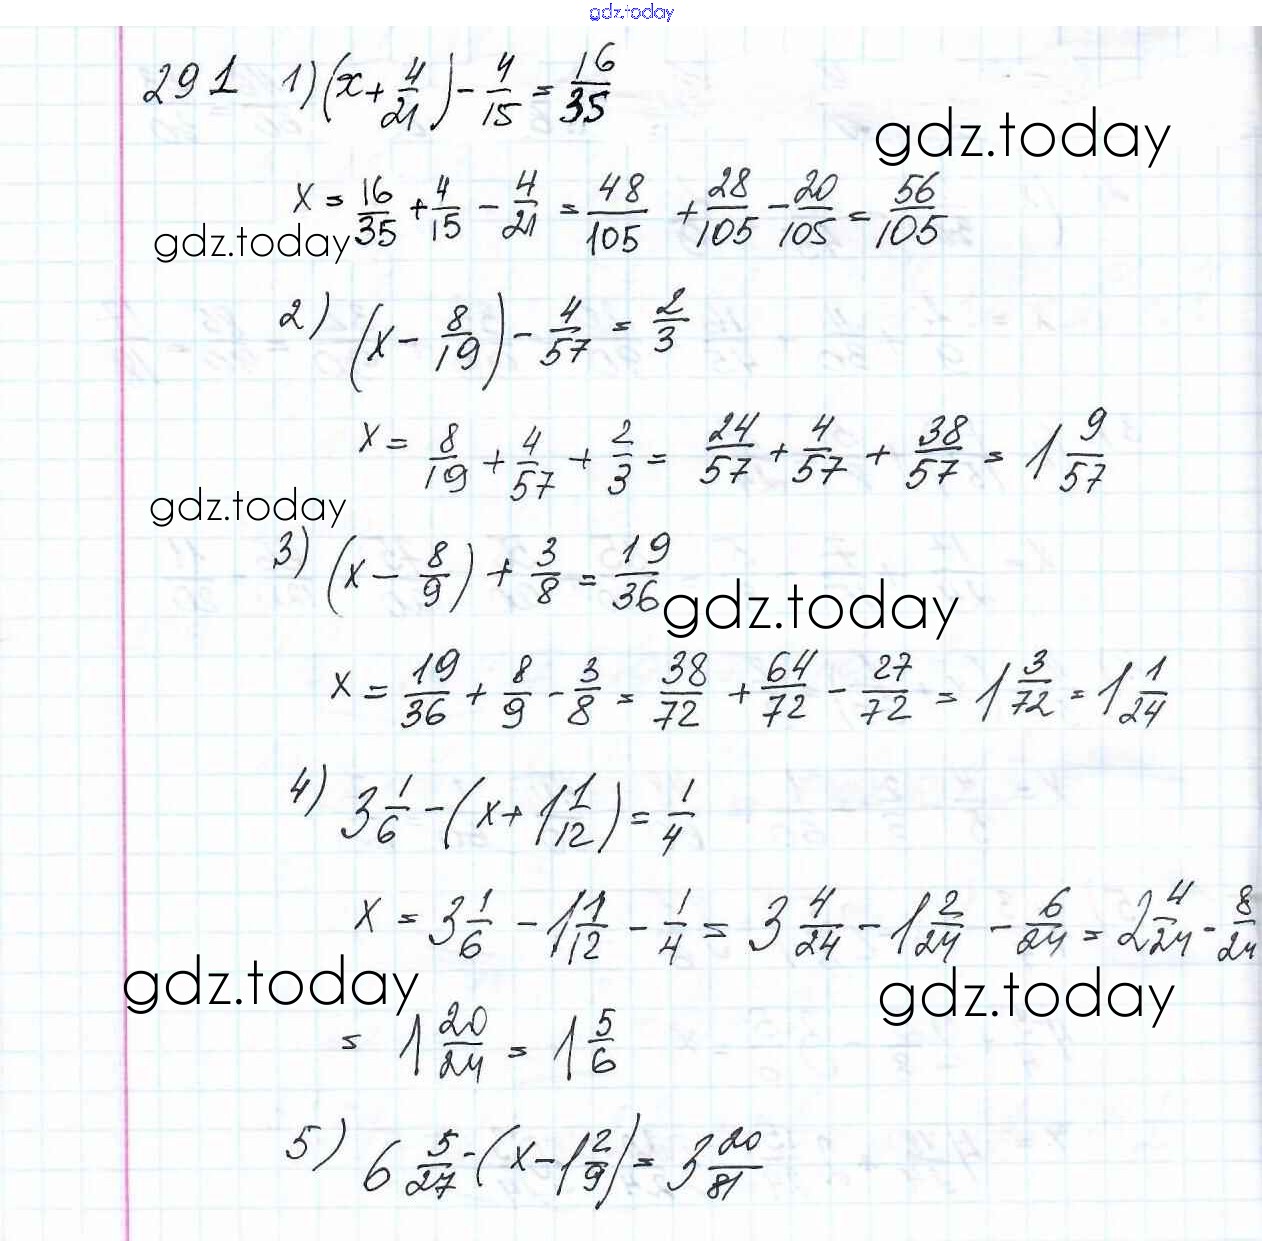 gdz.today
291 1) (x + 4/21) - 4/15 = 16/35
gdz.today
x = 16/35 + 4/15 - 4/21 = 48/105 + 28/105 - 20/105 = 56/105
gdz.today
2) (x - 8/19) - 4/57 = 2/3
x = 8/19 + 4/57 + 2/3 = 24/57 + 4/57 + 38/57 = 1 9/57
gdz.today
3) (x - 8/9) + 3/8 = 19/36
gdz.today
x = 19/36 + 8/9 - 3/8 = 38/72 + 64/72 - 27/72 = 1 3/72 = 1 1/24
4) 3 1/6 - (x + 1 1/12) = 1/4
x = 3 1/6 - 1 1/12 - 1/4 = 3 4/24 - 1 2/24 - 6/24 = 2 4/24 - 8/24
gdz.today
gdz.today
= 1 20/24 = 1 5/6
5) 6 5/27 - (x - 1 2/9) = 3 20/81